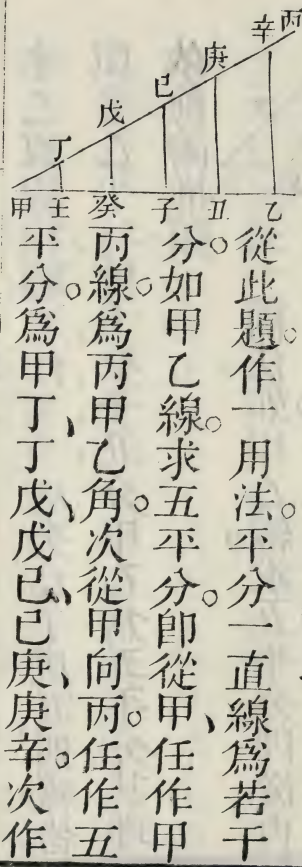 丙
辛
庚
己
戊
丁
乙
丑
子
癸
壬
甲
從此題。作一用法。平分一直線爲若干
分。如甲乙線。求五平分。卽從甲、任作甲
丙線。爲丙甲乙角。次從甲向丙。任作五
平分。爲甲丁、丁戊、戊己、己庚、庚辛。次作